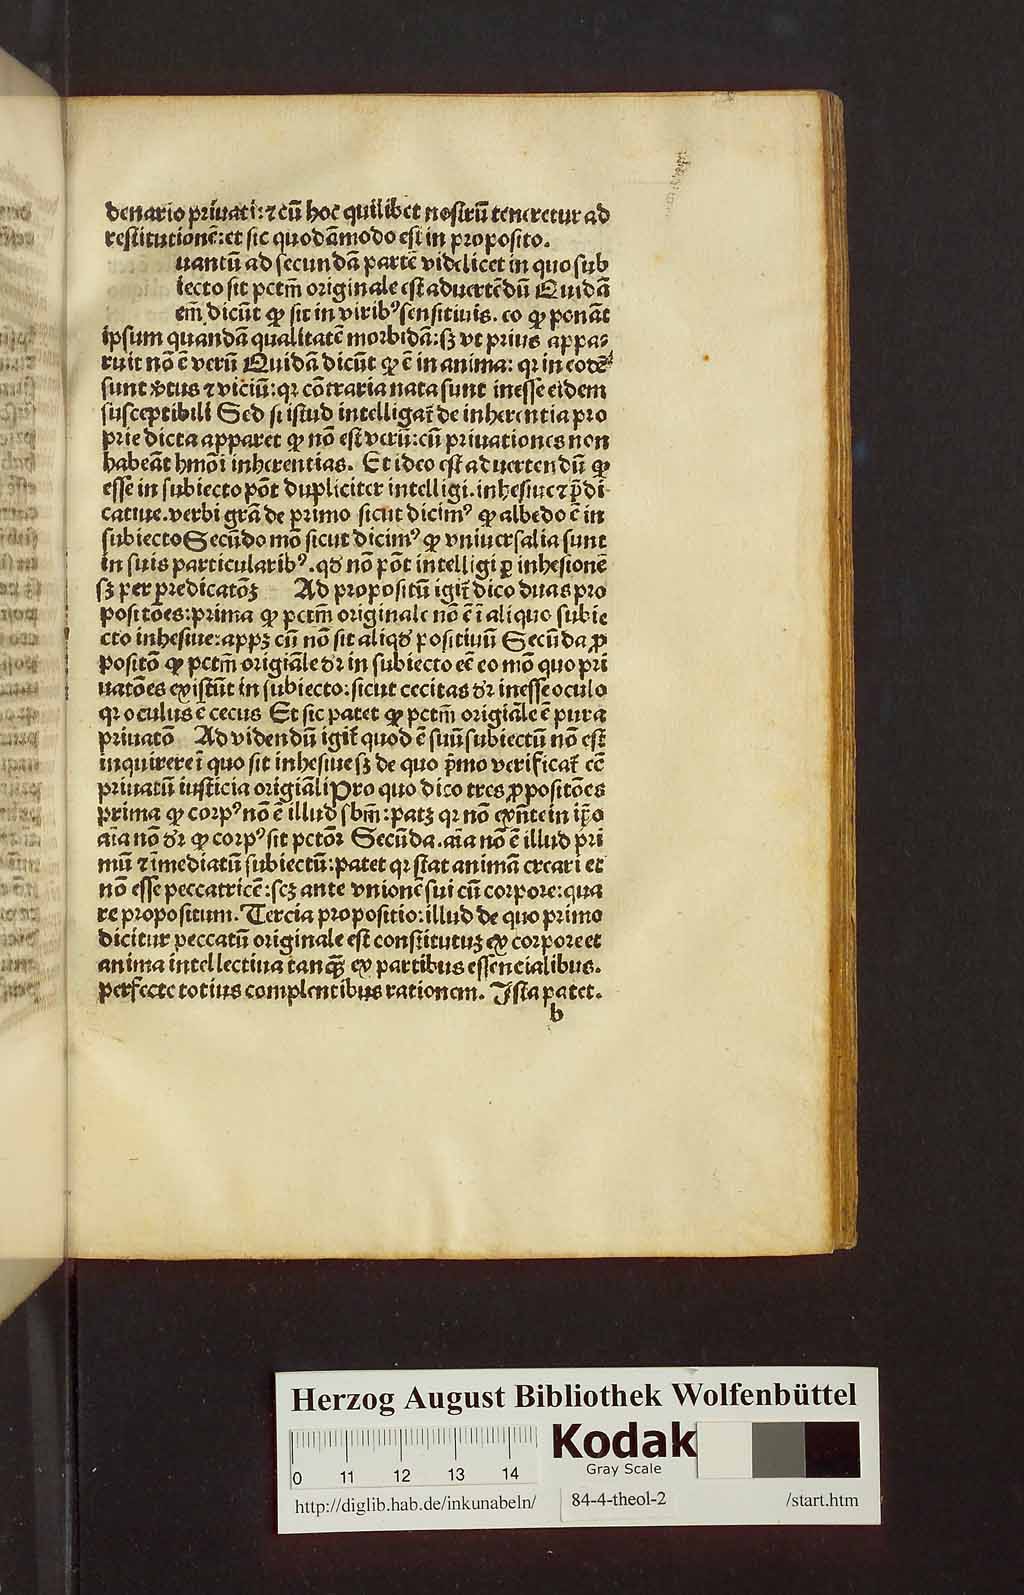 denario priuati: ⁊ cū hoc quilibet nostrū teneretur ad
restitutionē: et sic quodāmodo est in proposito.
uantū ad secundā partē videlicet in quo sub
iecto sit pctm̄ originale est aduertēdū Quidā
em̄ dicūt ꝙ sit in viribꝰ sensitiuis. eo ꝙ ponāt
ipsum quandā qualitatē morbidā: sꝫ vt prius appa⸗
ruit nō ē verū Quidā dicūt ꝙ ē in anima: qꝛ in eodē
sunt v̓tus ⁊ viciū: qꝛ cōtraria nata sunt inesse eidem
susceptibili Sed si istud intelligat᷑ de inherentia pro
prie dicta apparet ꝙ nō est verū: cū priuationes non
habeāt hmōi inherentias. Et ideo est aduertendū ꝙ
esse in subiecto pōt dupliciter intelligi. inhesiue ⁊ p̄di
catiue. verbi grā de primo sicut dicimꝰ ꝙ albedo ē in
subiecto Secūdo mō sicut dicimꝰ ꝙ vniuersalia sunt
in suis particularibꝰ. qd̓ nō pōt intelligi ꝑ inhesionē
sꝫ per predicatōꝫ Ad propositū igit᷑ dico duas pro
positōes: prima ꝙ pctm̄ originale nō ē ī aliquo subie
cto inhesiue: appꝫ cū nō sit aliqd̓ positiuū Secūda ꝓ
positō ꝙ pctm̄ origiāle dr̄ in subiecto eē eo mō quo pri
uatōes existūt in subiecto: sicut cecitas dr̄ inesse oculo
qꝛ oculus ē cecus Et sic patet ꝙ pctm̄ origiāle ē pura
priuatō Ad videndū igit᷑ quod ē suū subiectū nō est
inquirere ī quo sit inhesiue sꝫ de quo p̄mo verificat᷑ eē
priuatū iusticia origiāli Pro quo dico tres ꝓpositōes
prima ꝙ corpꝰ nō ē illud sbm̄: patꝫ qꝛ nō exn̄te in ip̄o
aīa nō dr̄ ꝙ corpꝰ sit pctōꝛ Secūda. aīa nō ē illud pri
mū ⁊ īmediatū subiectū: patet qꝛ stat animā creari et
nō esse peccatricē: scꝫ ante vnionē sui cū corpore: qua
re propositum. Tercia propositio: illud de quo primo
dicitur peccatū originale est constitutuꝫ ex corpore et
anima intellectiua tanqꝫ ex partibus essencialibus.
perfecte totius complentibus rationem. Ista patet.
b
Herzog August Bibliothek Wolfenbüttel
0 11 12 13 14
Kodak
Gray Scale
http://diglib.hab.de/inkunabeln/ 84-4-theol-2 /start.htm